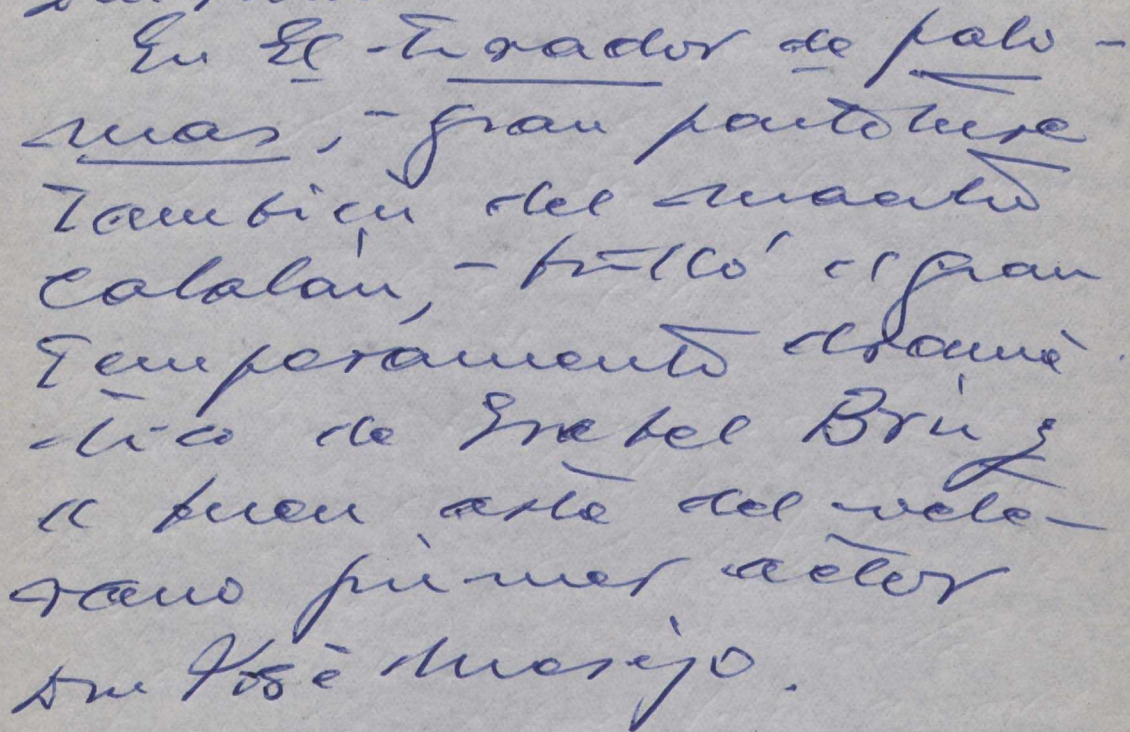 En El Tirador de palo-
mas, - gran partitura
también del maestro
catalán, - brilló el gran
temperamento dramá
tico de Isabel Brú y
el buen arte del vete-
rano primer actor
Don José Mesejo.